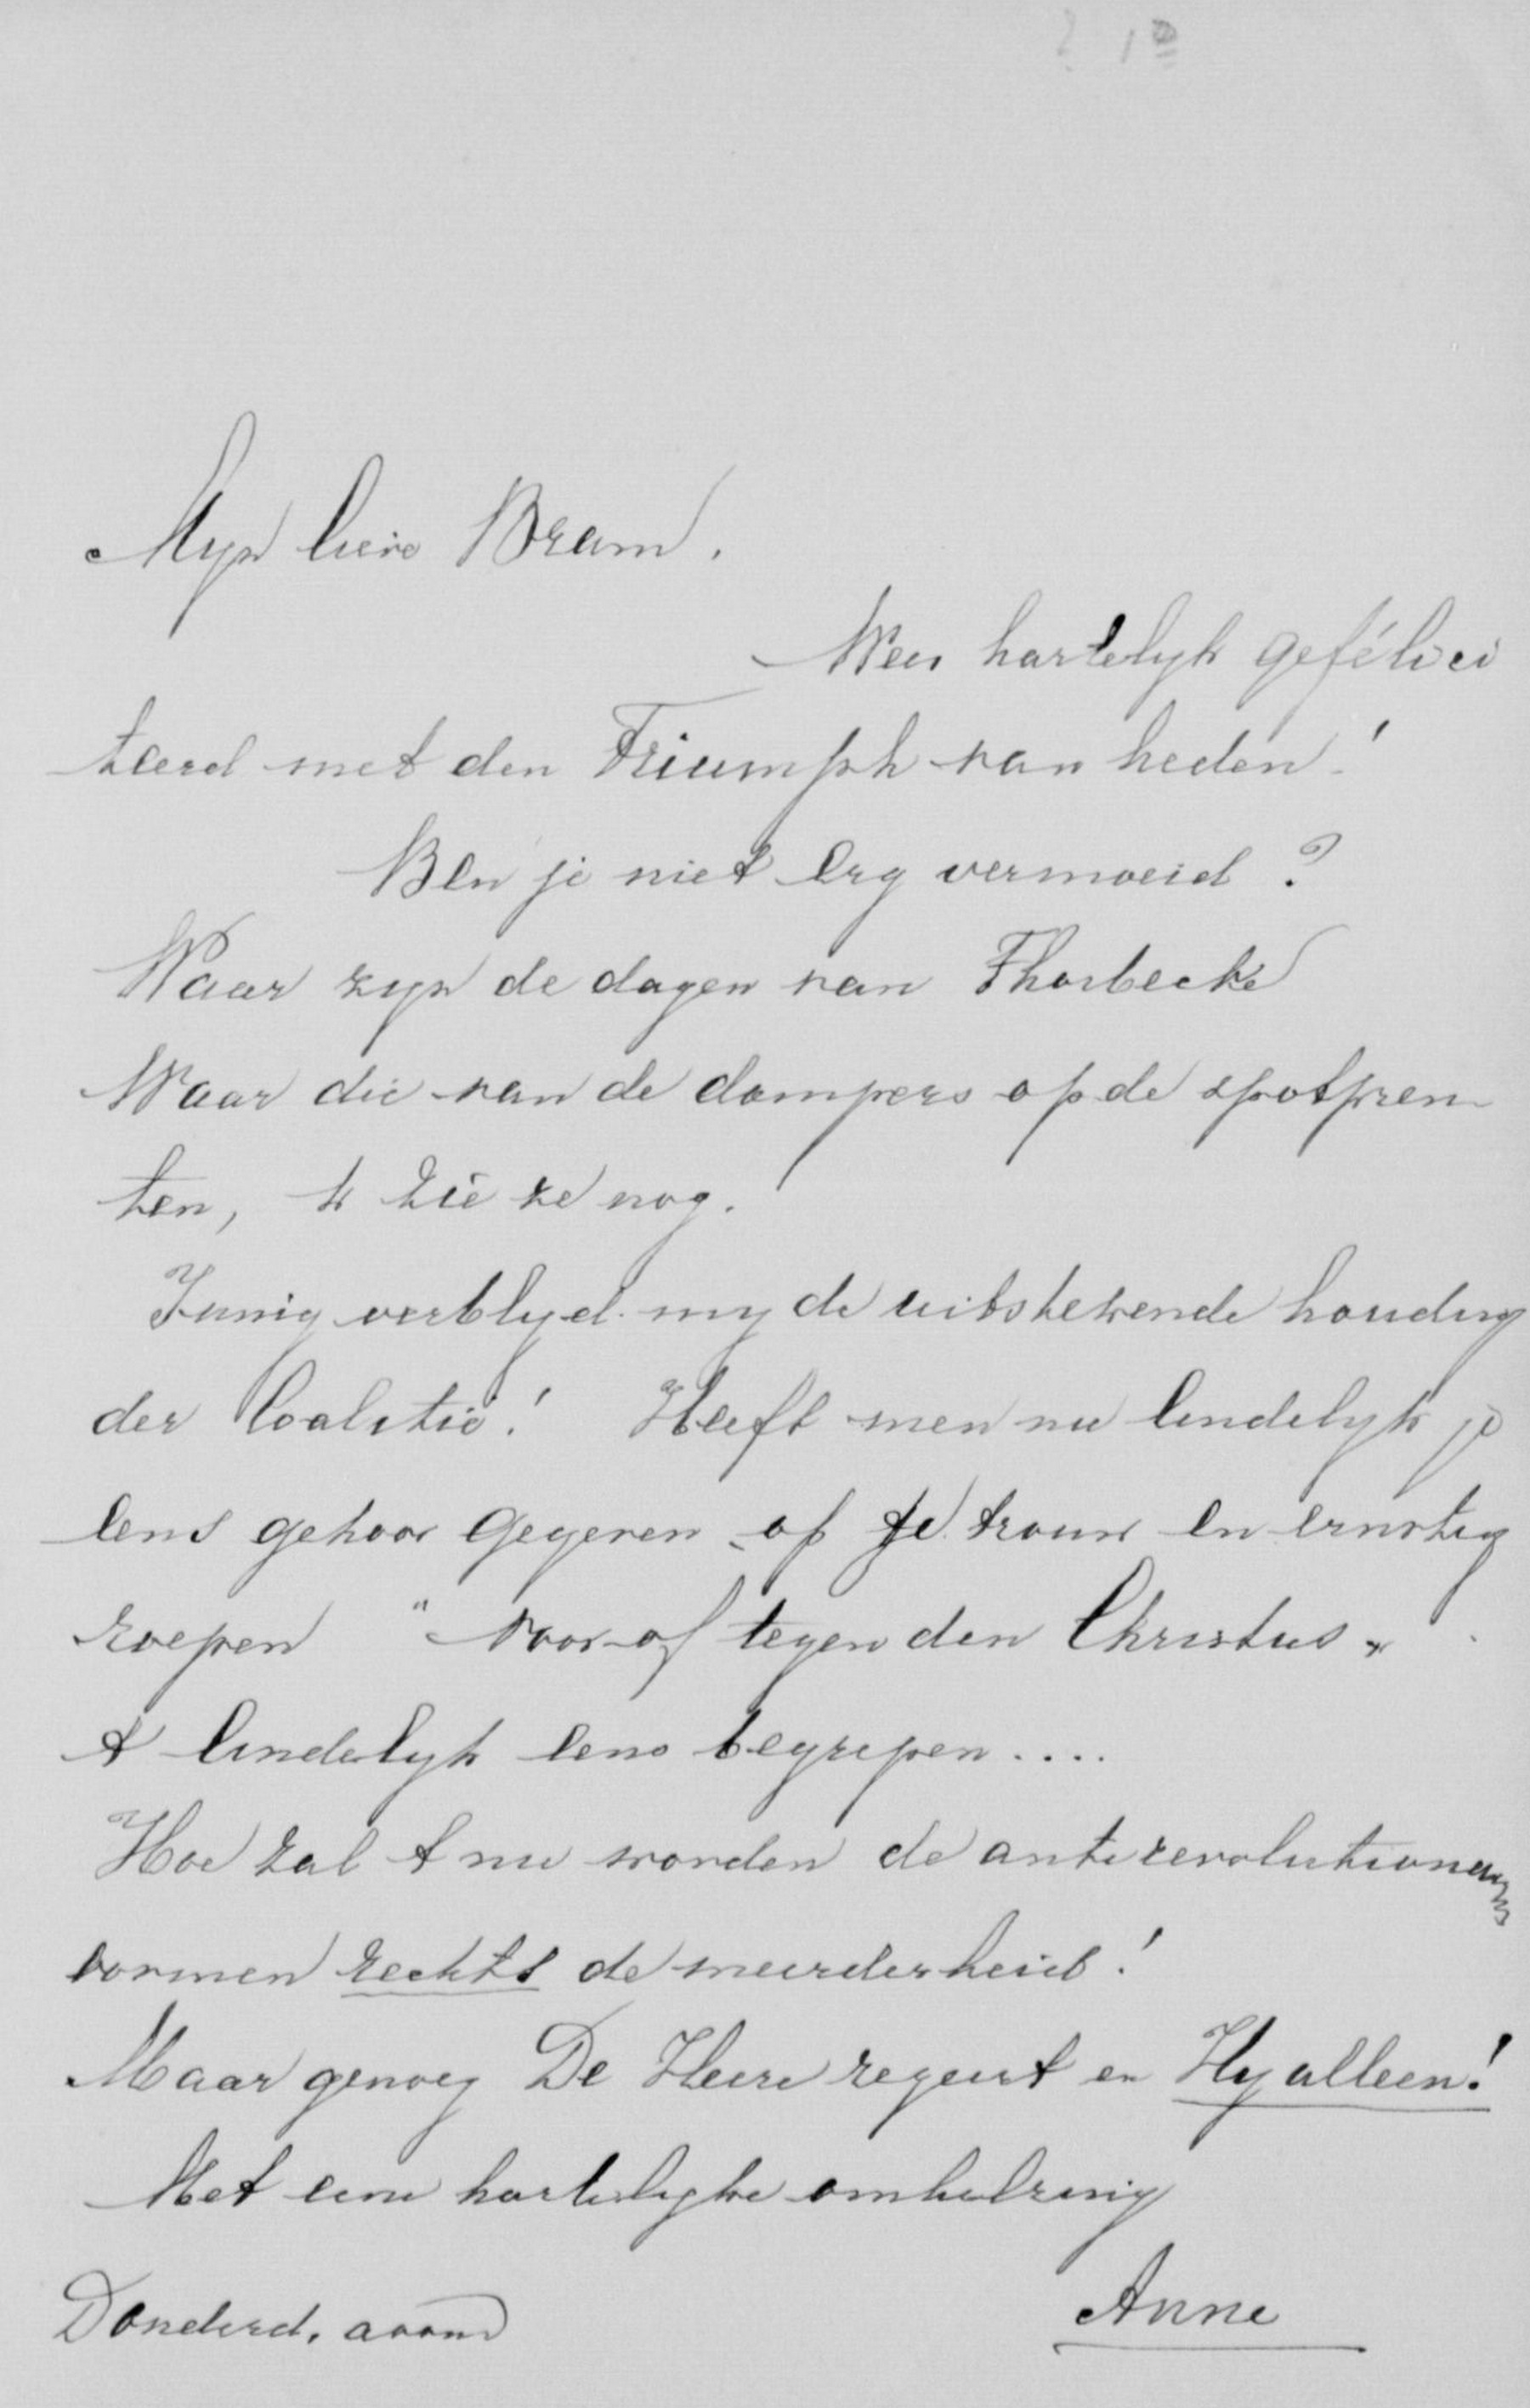 Myn lieve Bram.
Wees hartelyk gefélici
teerd met den Triumph van heden!
Ben je niet erg vermoeid?
Waar zyn de dagen van Thorbecke
Waar die van de dompers op de spotpren
ten, 'k zie ze nog.
Innig verblyd my de uitstekende houding
der Coalitie! Heeft men nu eindelyk je
eens gehoor gegeven of je trouw en ernstig
roepen "voor of tegen den Christus"
't eindelyk eens begrepen....
Hoe zal 't nu worden de antirevolutionairen
vormen rechts de meerderheid!
Maar genoeg De Heere regeert en Hy alleen!
Met eene hartelyke omhelzing
Anne
Donderd. avond